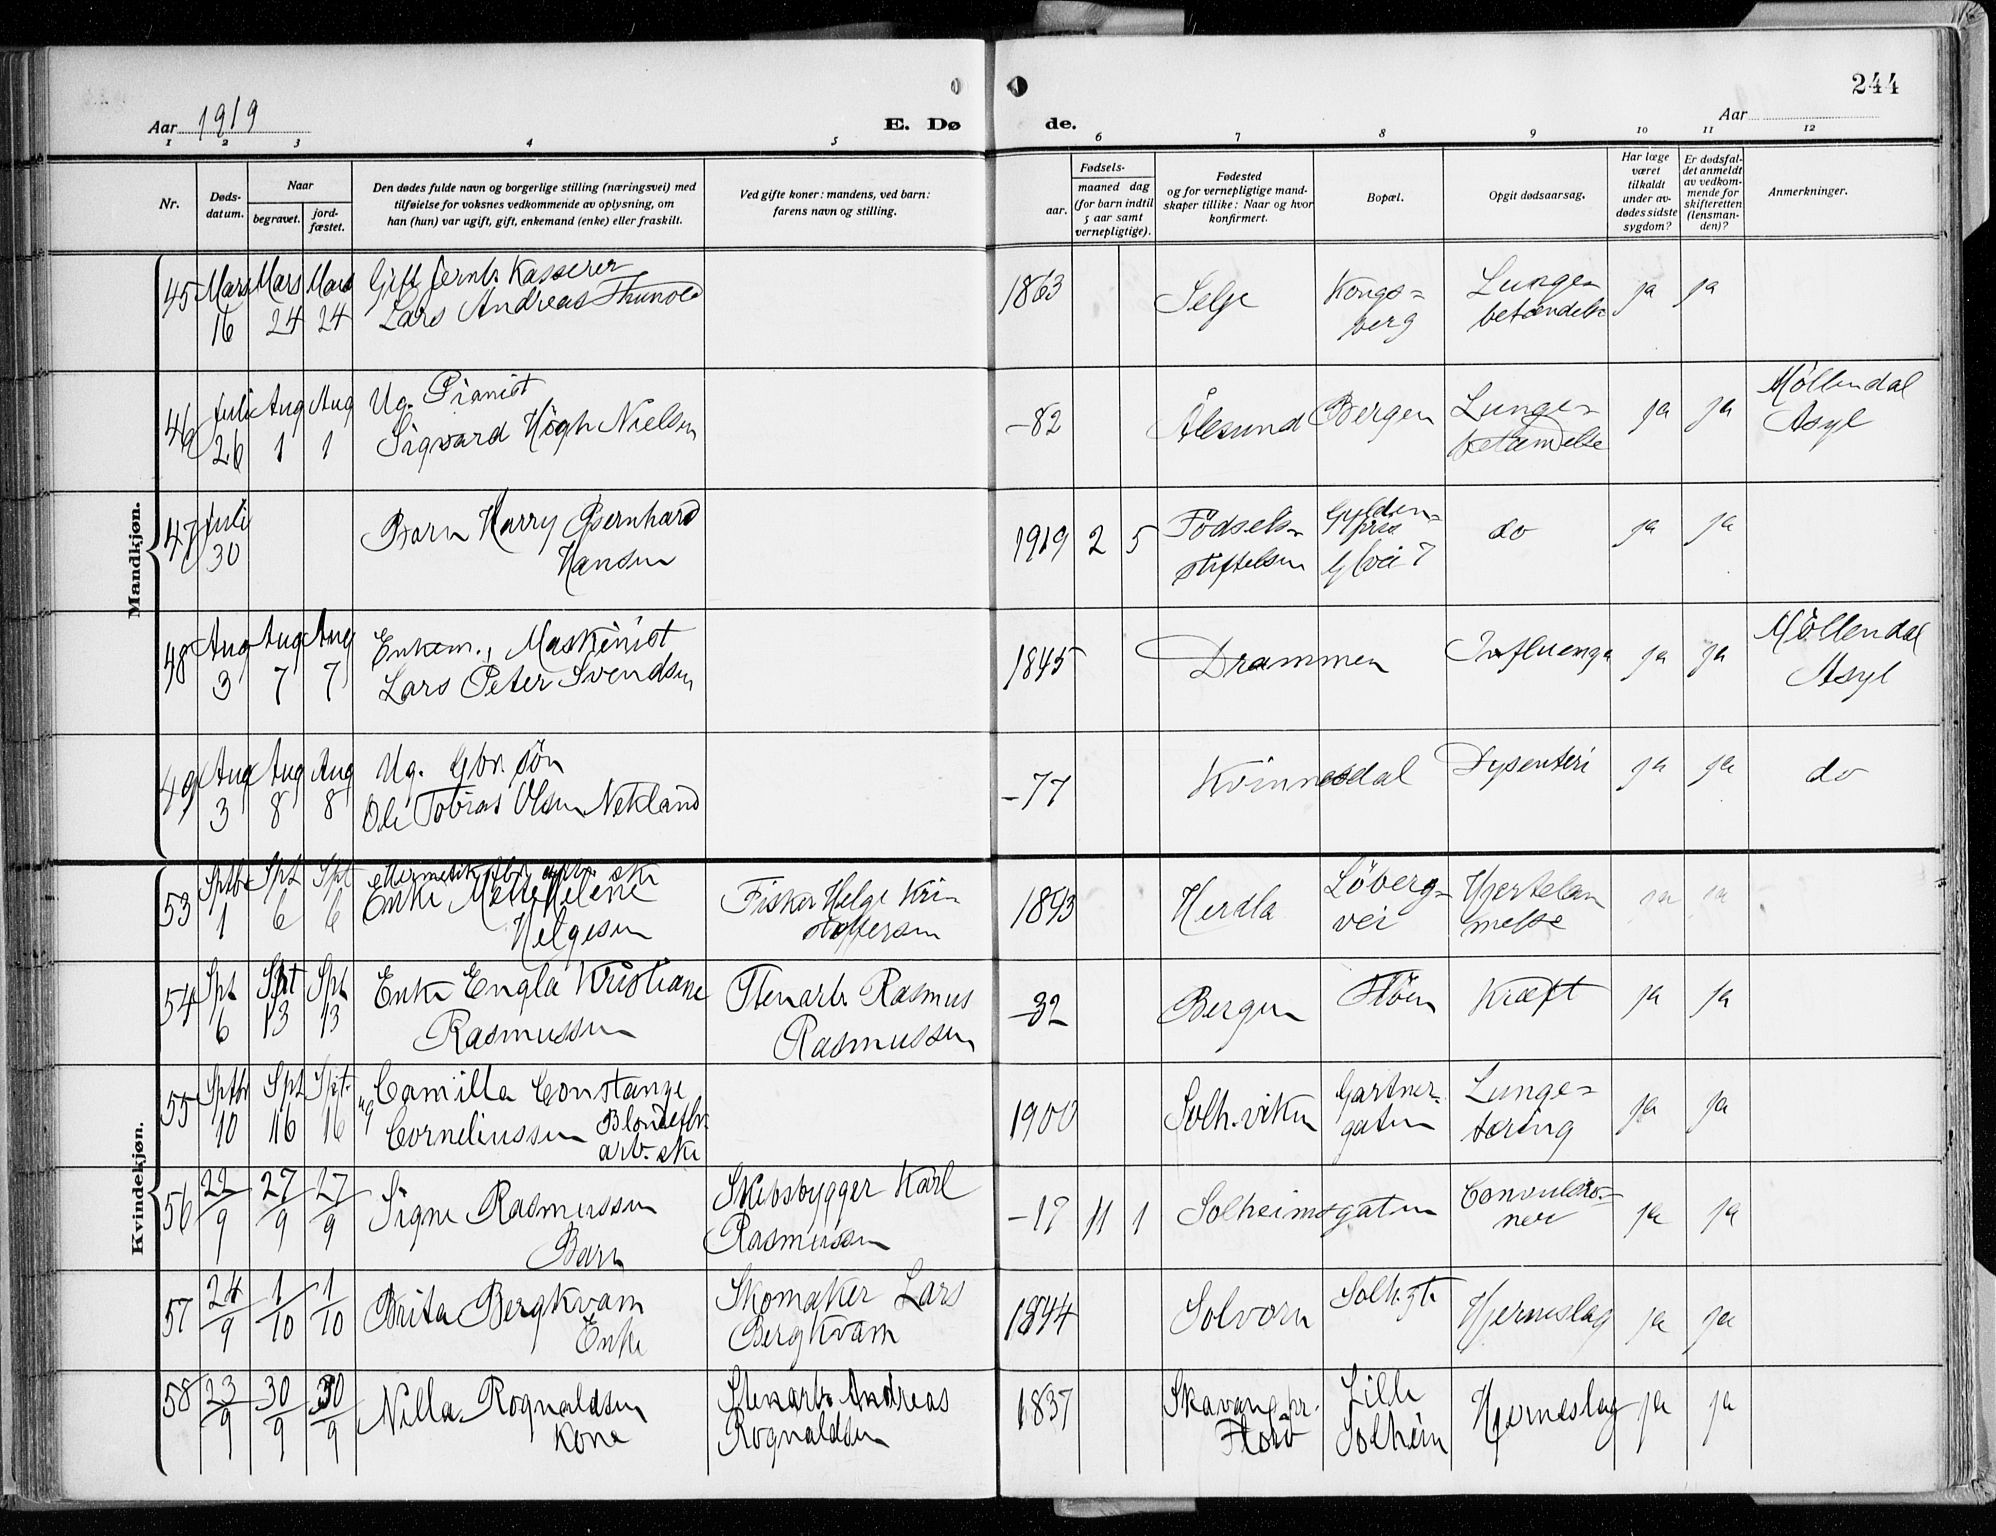 244
Aar 1919
E. Dø
de.
Aar
1 2 3 4 5 6 7 8 9 10 11 12
Nr.
Døds-
datum.
Naar
begravet.
jord-
fæstet.
Den dødes fulde navn og borgerlige stilling (næringsvei) med
tilføielse for voksnes vedkommende av oplysning, om
han (hun) var ugift, gift, enkemand (enke) eller fraskilt.
Ved gifte koner: mandens, ved barn:
farens navn og stilling.
Fødsels-
aar.
maaned dag
(for barn indtil
5 aar samt
vernepligtige).
Fødested
og for vernepligtige mand-
skaper tillike: Naar og hvor
konfirmert.
Bopæl.
Opgit dødsaarsag.
Har læge
været
tilkaldt
under av-
dødes sidste
sygdom?
Er dødsfal-
det anmeldt
av vedkom-
mende for
skifteretten
(lensman-
den)?
Anmerkninger.
Mandkjøn.
45 Mars Mars Mars Gift Jernb. Kasserer 1863 Selje Kongs= Lunge= ja ja
16 24 24 Lars Andreas Thunold berg betændelse
46 Juli Aug Aug Ug. Pianist -82 Ålesund Bergen Lunge= ja ja Møllendal
26 1 1 Sigvard Høgh Nielsen betændelse Asyl
47 Juli Barn Harry Bernhard 1919 2 5 Fødsels= Gylden= do ja ja
30 Hansen stiftelsen pris
vei 7
48 Aug Aug Aug Enkem., Maskinist 1845 Drammen Influenza ja ja Møllendal
3 7 7 Lars Peter Svendsen Asyl
49 Aug Aug Aug Ug. Gbr. søn -77 Kvinnesdal Dysenteri ja ja do
3 8 8 Ole Tobias Olsen Nekland
Kvindekjøn.
53 Septbr Spt Spt Hermetikfbr. arb. ske
1 6 6 Enke Mette Helene Fisker Helge Kri- 1893 Herdla Løberg= Hjertelam ja ja
Helgesen stoffersen vei melse
54 Spt Spt Spt Enke Engla Kristiane Stenarb. Rasmus -32 Bergen Støen Kræft ja ja
6 13 13 Rasmussen Rasmussen
55 Septbr Spt Spt. ug Camilla Constanze 1900 Solh.viken Gartner= Lunge= ja ja
10 16 16 Corneliussen Blondefbr. gaten tæring
arb.ske
56 22/9 27/9 27/9 Signe Rasmussen Skibsbygger Karl -17 11 1 Solheimsgaten Convulsio= ja ja
Barn Rasmussen ner
57 24/9 1/10 1/10 Brita Bergkvam Skomaker Lars 1844 Solvorn Solh.gt. Hjerneslag ja ja
Enke Bergkvam
58 23/9 30/9 30/9 Nilla Rognaldsen Stenarb. Andreas 1837 Skavang pr. Lille Hjerneslag ja ja
Kone Rognaldsen Florø Solheim